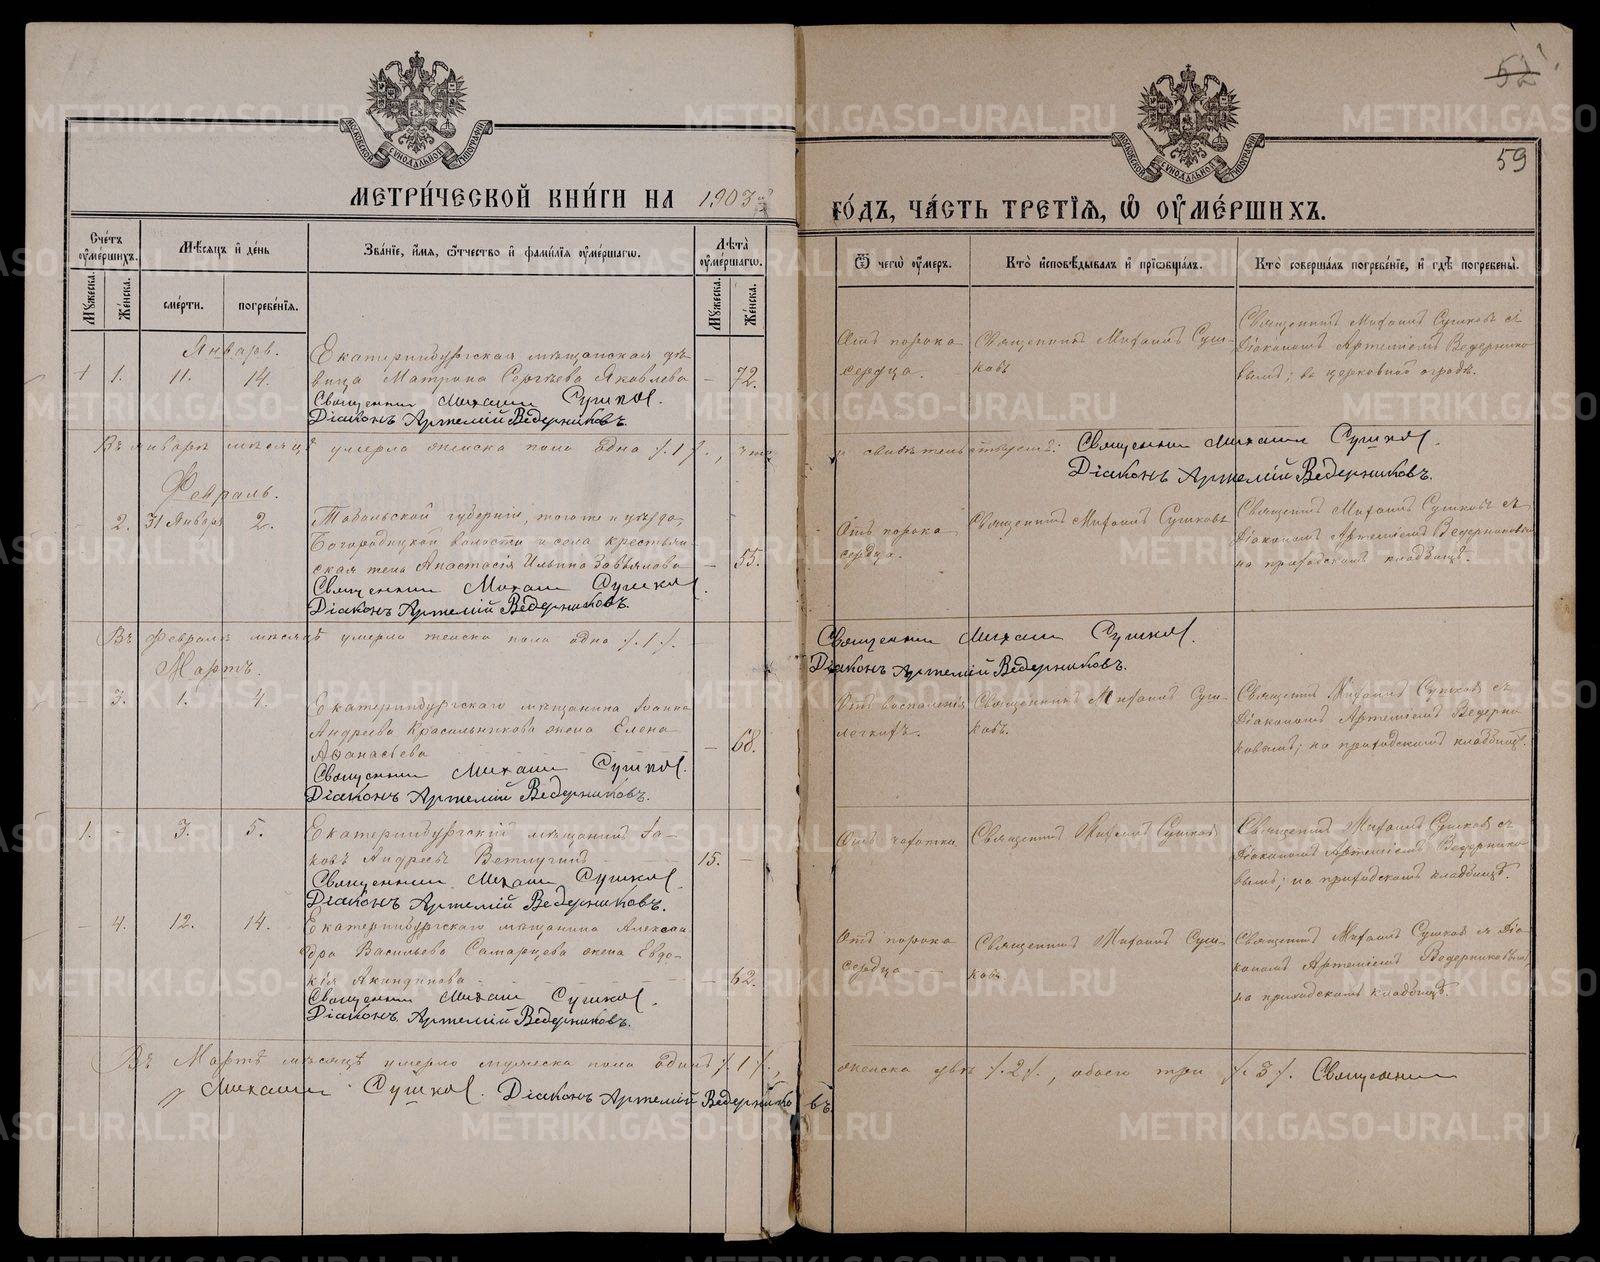 52
59
МОСКОВСКОЙ СѴНОДАЛЬНОЙ ТИПОГРАФІИ
МОСКОВСКОЙ СѴНОДАЛЬНОЙ ТИПОГРАФІИ
МЕТРИ́ЧЕСКОЙ КНИ́ГИ НА 1903й
ГО́ДЪ, ЧА́СТЬ ТРЕТІѦ, Ѡ ОУМЕ́РШИХЪ.
Сче́тъ оумершихъ.
Мѣсяцъ и де́нь
Зва́нїе, и́мя, ѻтчество и фами́лїя оуме́ршагѡ.
Лѣта̀ оуме́ршагѡ.
Мꙋжеска.
Же́нска.
сме́рти.
погребе́нїя.
Мꙋжеска.
Же́нска.
Ѿ чегѡ̀ оу́меръ.
Кто̀ и҆сповѣ́дывалъ и҆ прїѡбща́лъ.
Кто̀ соверша́лъ погребе́нїе, и҆ гдѣ̀ погребены̀.
Январь.
1 1. 11. 14.
Екатеринбургская мѣщанская дѣ-
вица Матрона Сергѣева Яковлева — 72.
Священник Михаил Сушков.
Діаконъ Артемій Ведерниковъ.
Отъ порока
сердца.
Священникъ Михаилъ Суш-
ковъ
Священникъ Михаилъ Сушковъ съ
Діакономъ Артеміемъ Ведернико-
вымъ; въ церковной оградѣ.
Въ январѣ мѣсяцѣ умерла женска пола одна /.1/., что
и свидѣтельствуемъ: Священник Михаил Сушков.
Діаконъ Артемій Ведерниковъ.
Февраль.
- 2. 31 Января 2.
Тобольской губерніи, того же и уѣзда,
Богородицкой волости и села крестьян-
ская жена Анастасія Ильина Завьялова — 55.
Священник Михаил Сушков.
Діаконъ Артемій Ведерниковъ.
Отъ порока
сердца.
Священникъ Михаилъ Сушковъ
Священникъ Михаилъ Сушковъ съ
Діакономъ Артеміемъ Ведерниковымъ
на приходскомъ кладбищѣ.
Въ февралѣ мѣсяцѣ умерла женска пола одна /.1/.
Священник Михаил Сушков.
Діаконъ Артемій Ведерниковъ.
Мартъ.
- 3. 1. 4.
Екатеринбургскаго мѣщанина Іоанна
Андреева Красильникова жена Елена
Аѳанасьева — 68.
Священник Михаил Сушков.
Діаконъ Артемій Ведерниковъ.
Отъ воспаленія
легкихъ.
Священникъ Михаилъ Суш-
ковъ.
Священникъ Михаилъ Сушковъ съ
Діакономъ Артеміемъ Ведерни-
ковымъ; на приходскомъ кладбищѣ.
1. - 3. 5.
Екатеринбургскій мѣщанинъ Іа-
ковъ Андреевъ Ветлугинъ 15. —
Священник Михаил Сушков.
Діаконъ Артемій Ведерниковъ.
Отъ чахотки
Священникъ Михаилъ Сушковъ
Священникъ Михаилъ Сушковъ съ
Діакономъ Артеміемъ Ведернико-
вымъ; на приходскомъ кладбищѣ.
- 4. 12. 14.
Екатеринбургскаго мѣщанина Алексан-
дра Васильева Самарцева жена Евдо-
кія Акиндинова — 62.
Священник Михаил Сушков.
Діаконъ Артемій Ведерниковъ.
Отъ порока
сердца
Священникъ Михаилъ Суш-
ковъ
Священникъ Михаилъ Сушковъ съ Діа-
кономъ Артеміемъ Ведерниковымъ
на приходскомъ кладбищѣ.
Въ Мартѣ мѣсяцѣ умерло мужеска пола одинъ /.1/.,
женска двѣ /.2/., обоего три /.3/. Священник
Михаил Сушков. Діаконъ Артемій Ведерниковъ.
METRIKI.GASO-URAL.RU